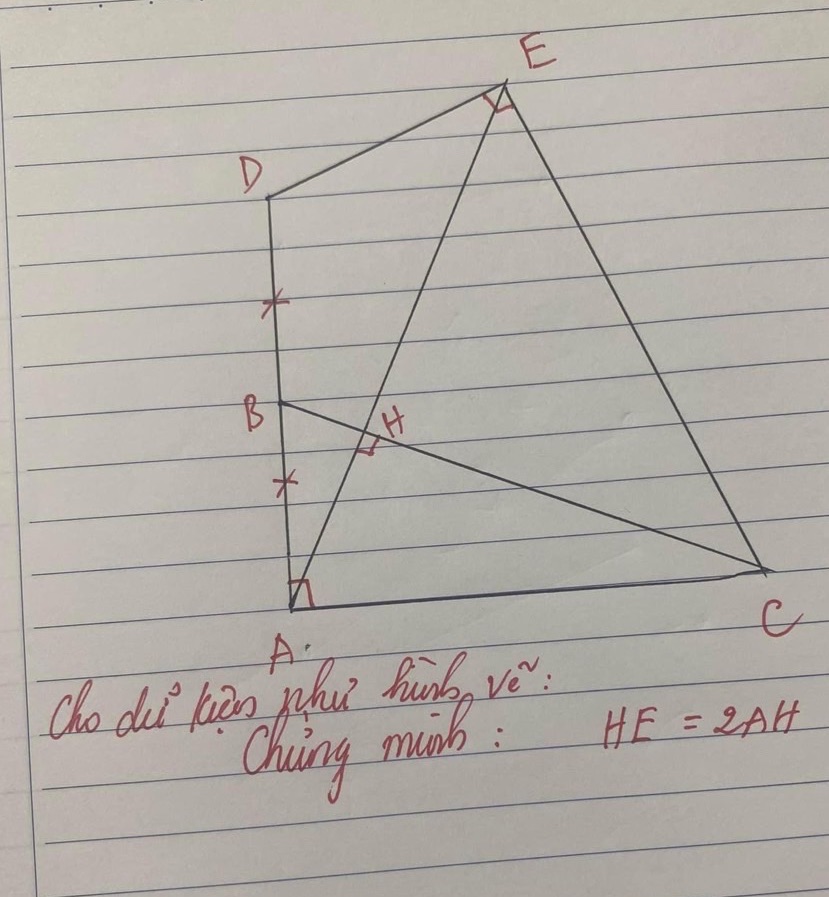 E
D
B
H
A
C
Cho dữ kiện như hình vẽ:
Chứng minh: HE = 2AH